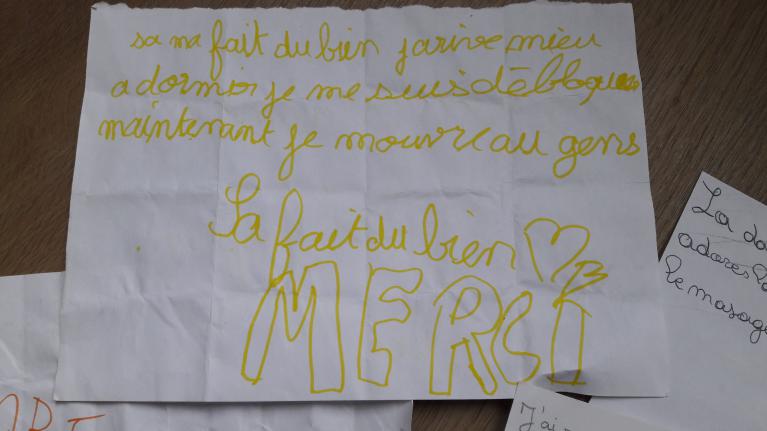 sa ma fait du bien jarive mieu
a dormir je me suis débloque
maintenant je mouvre au gens
Sa fait du bien
MERCI
La da
adores
le masage
J'ai